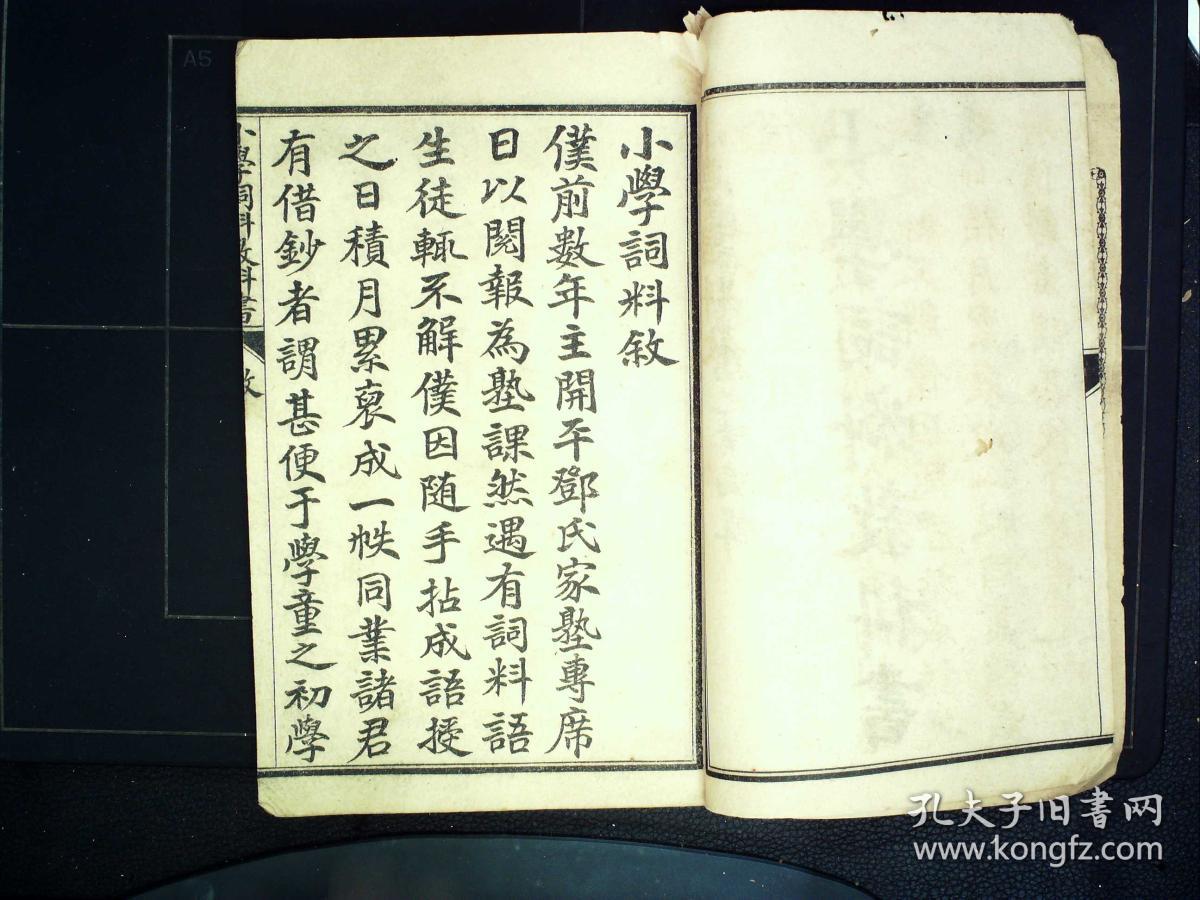 小學詞料敘
僕前數年主開平鄧氏家塾專席
日以閱報為塾課然遇有詞料語
生徒輒不解僕因随手拈成語授
之日積月累裒成一帙同業諸君
有借鈔者謂甚便于學童之初學
小學詞料教科書 敘
A5
孔夫子旧书网
www.kongfz.com